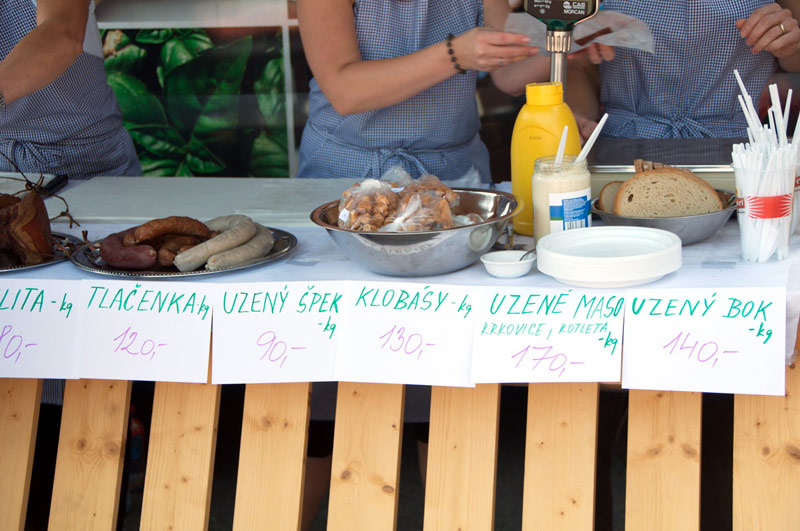 CAS
MORCAN
LITA -kg
80,-
TLAČENKA -kg
120,-
UZENÝ ŠPEK
-kg
90,-
KLOBÁSY -kg
130,-
UZENÉ MASO
KRKOVICE, KOTLETA
-kg
170,-
UZENÝ BOK
-kg
140,-